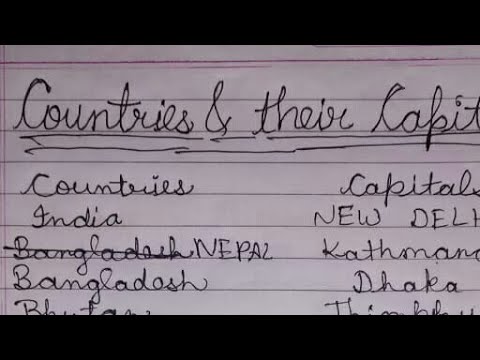 Countries & their Capit
Countries Capitals
India NEW DELH
Bangladesh NEPAL Kathmand
Bangladesh Dhaka
Bhutan Thimphu